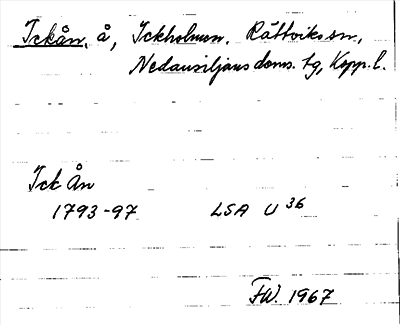 Ickån, å, Ickholmen. Rättviks sn.,
Nedansiljans doms. tg, Kopp. l.
Ick Ån
1793-97 LSA U 36
FW. 1967